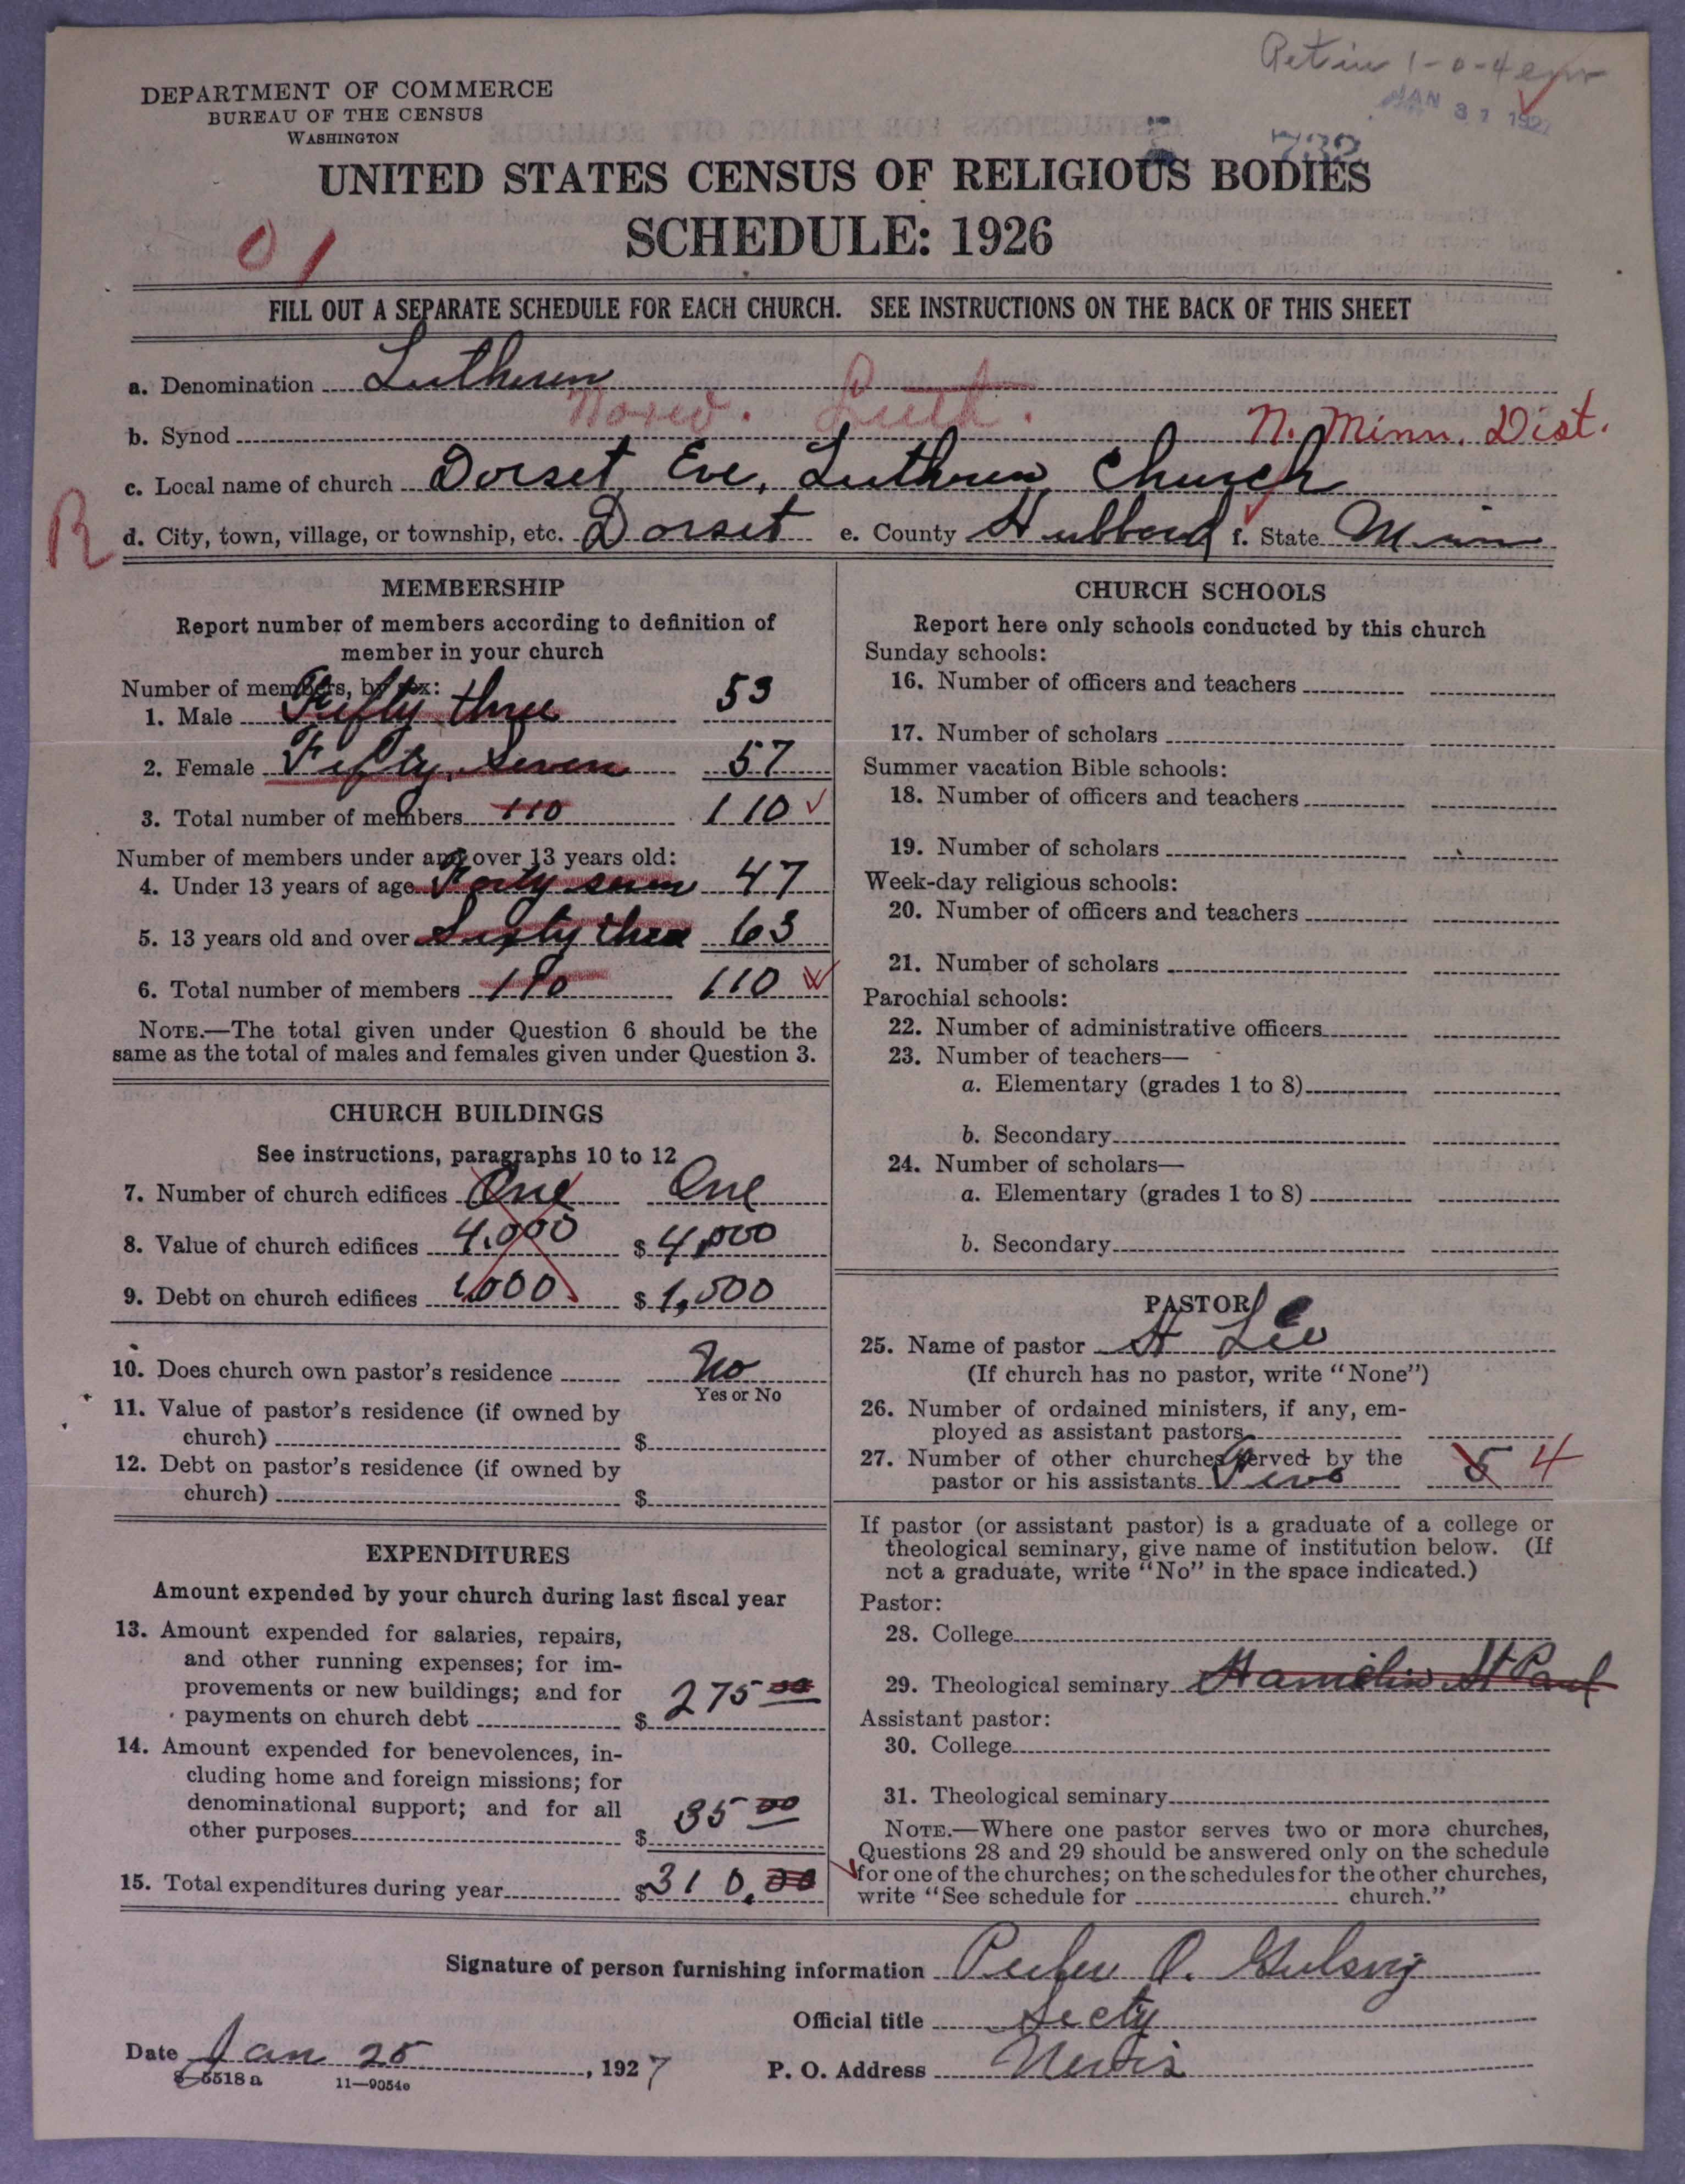 DEPARTMENT OF COMMERCE
BUREAU OF THE CENSUS
WASHINGTON
JAN 31 1927
732
UNITED STATES CENSUS OF RELIGIOUS BODIES
SCHEDULE: 1926
01
FILL OUT A SEPARATE SCHEDULE FOR EACH CHURCH. SEE INSTRUCTIONS ON THE BACK OF THIS SHEET
a. Denomination Lutheren
Norw. Luth.
b. Synod N. Minn. Dist.
c. Local name of church Dorset Eve. Luthren Church
R
d. City, town, village, or township, etc. Dorset e. County Hubbard f. State Minn
MEMBERSHIP
Report number of members according to definition of
member in your church
Number of members, by sex:
1. Male Fifty three 53
2. Female Fifty Seven 57
3. Total number of members 110 110
Number of members under and over 13 years old:
4. Under 13 years of age Forty seven 47
5. 13 years old and over Sixty three 63
6. Total number of members 110 110
NOTE.—The total given under Question 6 should be the
same as the total of males and females given under Question 3.
CHURCH BUILDINGS
See instructions, paragraphs 10 to 12
7. Number of church edifices One One
8. Value of church edifices 4,000 $ 4,000
9. Debt on church edifices 1,000 $ 1,000
10. Does church own pastor's residence No
Yes or No
11. Value of pastor's residence (if owned by
church) $
12. Debt on pastor's residence (if owned by
church) $
EXPENDITURES
Amount expended by your church during last fiscal year
13. Amount expended for salaries, repairs,
and other running expenses; for im-
provements or new buildings; and for
payments on church debt $ 275 00
14. Amount expended for benevolences, in-
cluding home and foreign missions; for
denominational support; and for all
other purposes $ 35 00
15. Total expenditures during year $ 310.00
CHURCH SCHOOLS
Report here only schools conducted by this church
Sunday schools:
16. Number of officers and teachers
17. Number of scholars
Summer vacation Bible schools:
18. Number of officers and teachers
19. Number of scholars
Week-day religious schools:
20. Number of officers and teachers
21. Number of scholars
Parochial schools:
22. Number of administrative officers
23. Number of teachers—
a. Elementary (grades 1 to 8)
b. Secondary
24. Number of scholars—
a. Elementary (grades 1 to 8)
b. Secondary
PASTOR
25. Name of pastor H Lee
(If church has no pastor, write "None")
26. Number of ordained ministers, if any, em-
ployed as assistant pastors
27. Number of other churches served by the
pastor or his assistants Five 5 4
If pastor (or assistant pastor) is a graduate of a college or
theological seminary, give name of institution below. (If
not a graduate, write "No" in the space indicated.)
Pastor:
28. College
29. Theological seminary Hamelin St Paul
Assistant pastor:
30. College
31. Theological seminary
NOTE.—Where one pastor serves two or more churches,
Questions 28 and 29 should be answered only on the schedule
for one of the churches; on the schedules for the other churches,
write "See schedule for church."
Signature of person furnishing information Peder O. Gulsvig
Official title Secty
Date Jan 25, 1927 P. O. Address Nevis
8-5518a 11—9054e